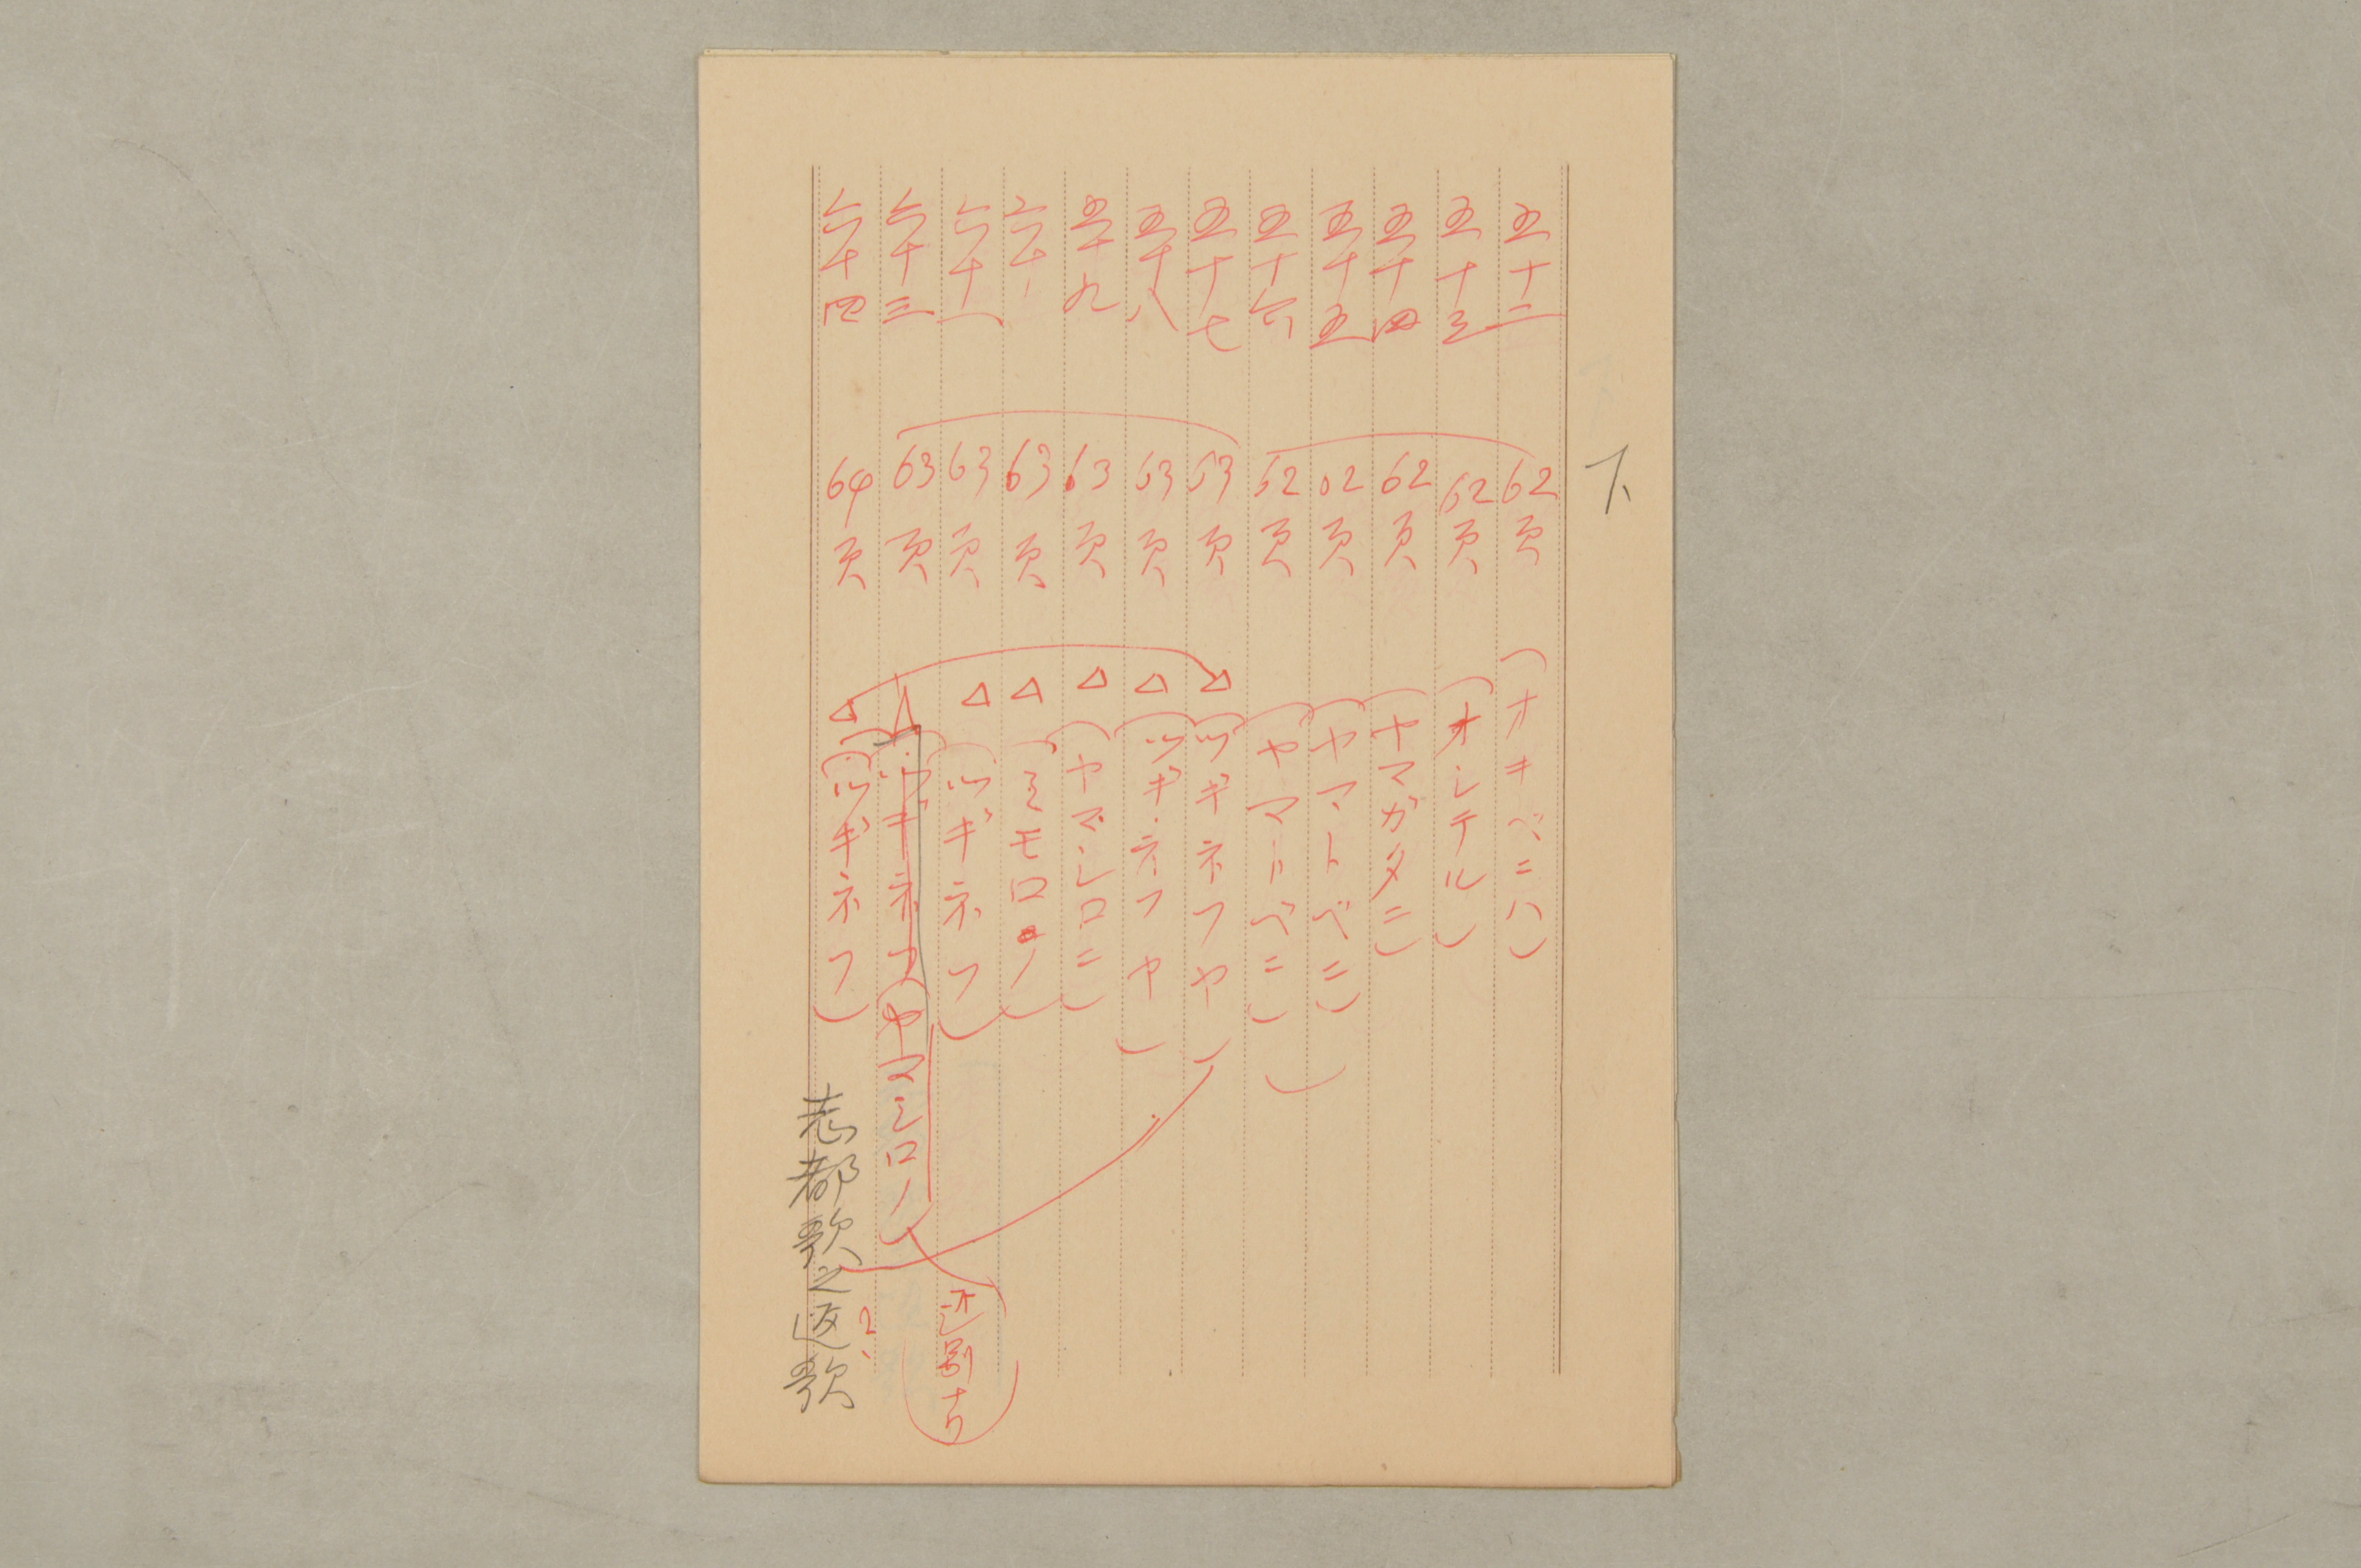 下
五十二 62頁 (オキベニハ)
五十三 62頁 (オシテル)
五十四 62頁 (ヤマガタニ)
五十五 62頁 (ヤマトベニ)
五十六 62頁 (ヤマトベニ)
五十七 63頁 △ (ツギネフヤ)
五十八 63頁 △ (ツギネフヤ)
五十九 63頁 △ (ヤマシロニ)
六十 63頁 △ (ミモロノ)
六十一 63頁 △ (ツギネフ)
別ナリ
六十三 63頁 △ (ツギネフ (ヤマシロノ)
六十四 64頁 △ (ツギネフ)
志都歌之返歌